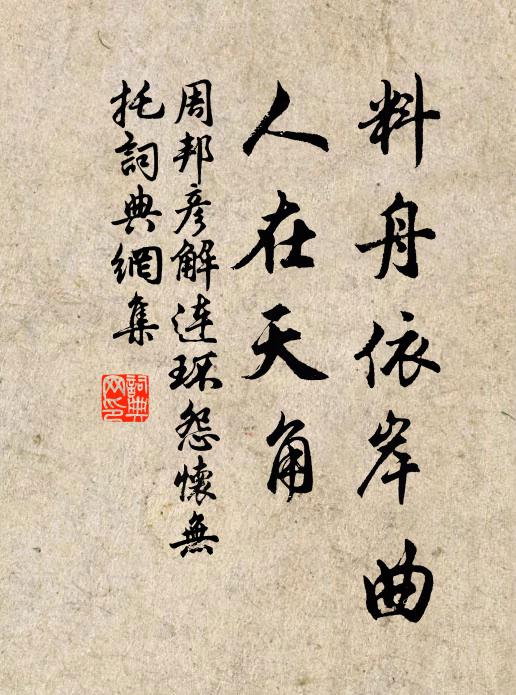 料舟依岸曲
人在天角
周邦彦解连环怨懷無
托詞典網集
詞典网印